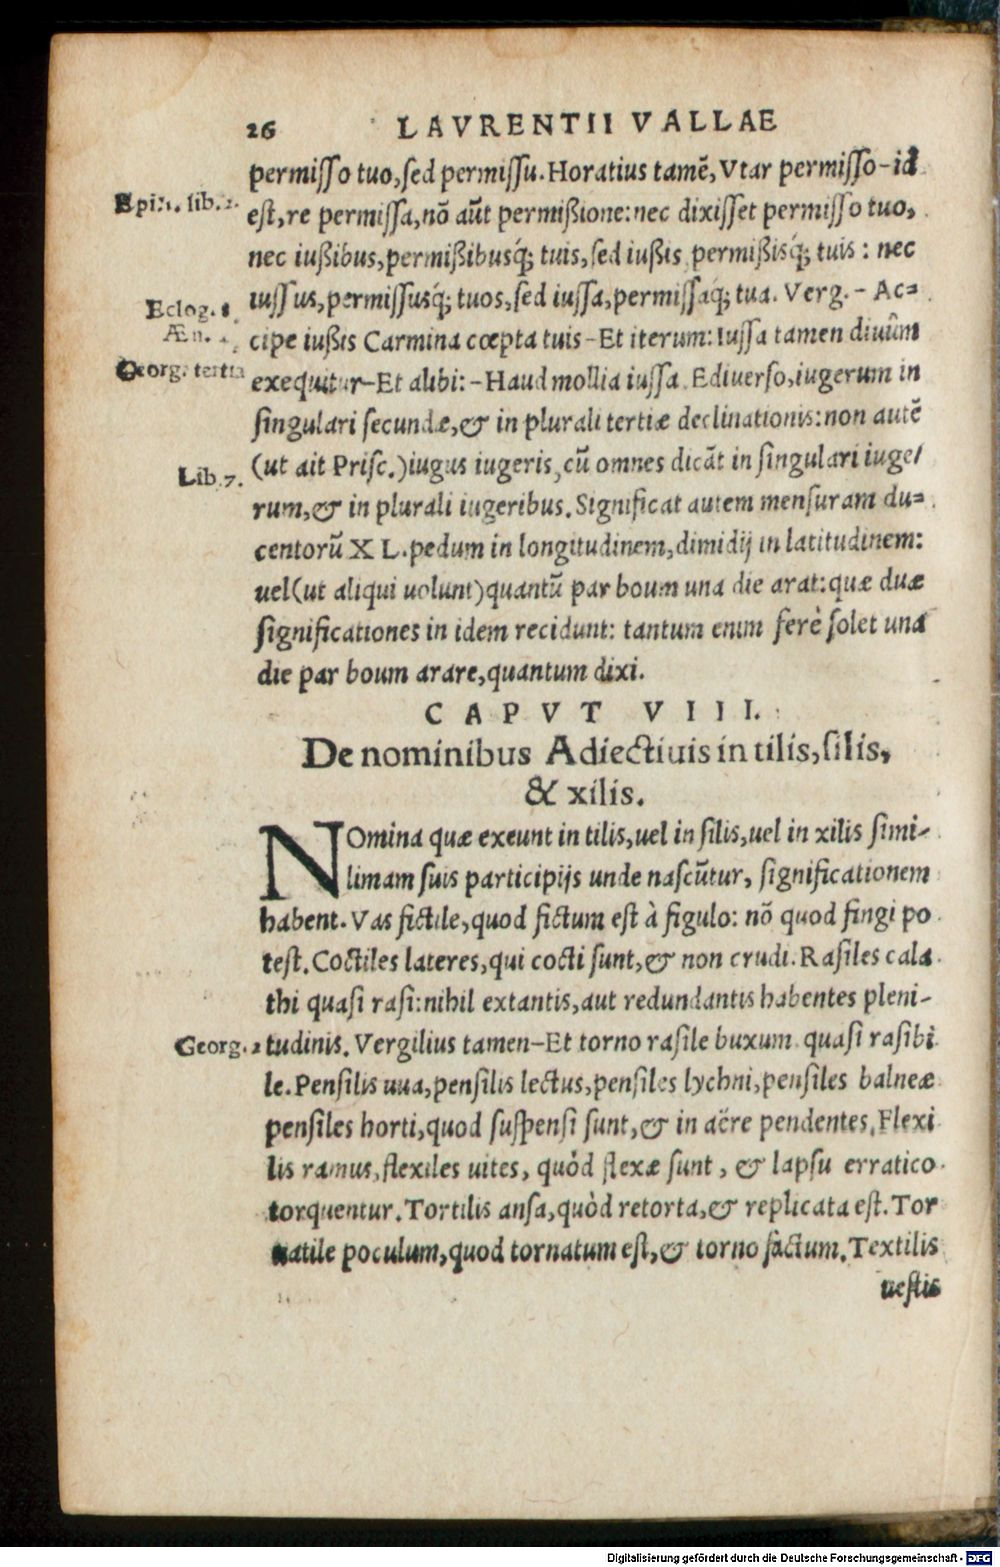 26 LAVRENTII VALLAE
permisso tuo, sed permissu. Horatius tamē, Vtar permisso-id
Epist. lib. 2.
est, re permissa, nō aūt permißione: nec dixisset permisso tuo,
nec iußibus, permißibusq́; tuis, sed iußis permißisq́; tuis: nec
iussus, permissusq́; tuos, sed iussa, permissaq́; tua. Verg. - Ac=
Eclog. 8
cipe iußis Carmina cœpta tuis - Et iterum: Iussa tamen diuûm
Æn.
exequitur-Et alibi: - Haud mollia iussa. Ediuerso, iugerum in
Georg. tertia
singulari secundæ, & in plurali tertiæ declinationis: non autē
(ut ait Prisc.) iugus iugeris, cū omnes dicāt in singulari iuge/
Lib. 7.
rum, & in plurali iugeribus. Significat autem mensuram du=
centorū XL. pedum in longitudinem, dimidij in latitudinem:
uel (ut aliqui uolunt) quantū par boum una die arat: quæ duæ
significationes in idem recidunt: tantum enim ferè solet una
die par boum arare, quantum dixi.
CAPVT VIII.
De nominibus Adiectiuis in tilis, silis,
& xilis.
NOmina quæ exeunt in tilis, uel in silis, uel in xilis simi-
limam suis participijs unde nascūtur, significationem
habent. Vas fictile, quod fictum est à figulo: nō quod fingi po
test. Coctiles lateres, qui cocti sunt, & non crudi. Rasiles cala
thi quasi rasi: nihil extantis, aut redundantis habentes pleni-
Georg. 2
tudinis. Vergilius tamen-Et torno rasile buxum quasi rasibi
le. Pensilis uua, pensilis lectus, pensiles lychni, pensiles balneæ
pensiles horti, quod suspensi sunt, & in aëre pendentes. Flexi
lis ramus, flexiles uites, quòd flexæ sunt, & lapsu erratico
torquentur. Tortilis ansa, quòd retorta, & replicata est. Tor
natile poculum, quod tornatum est, & torno factum. Textilis
uestis
Digitalisierung gefördert durch die Deutsche Forschungsgemeinschaft - DFG